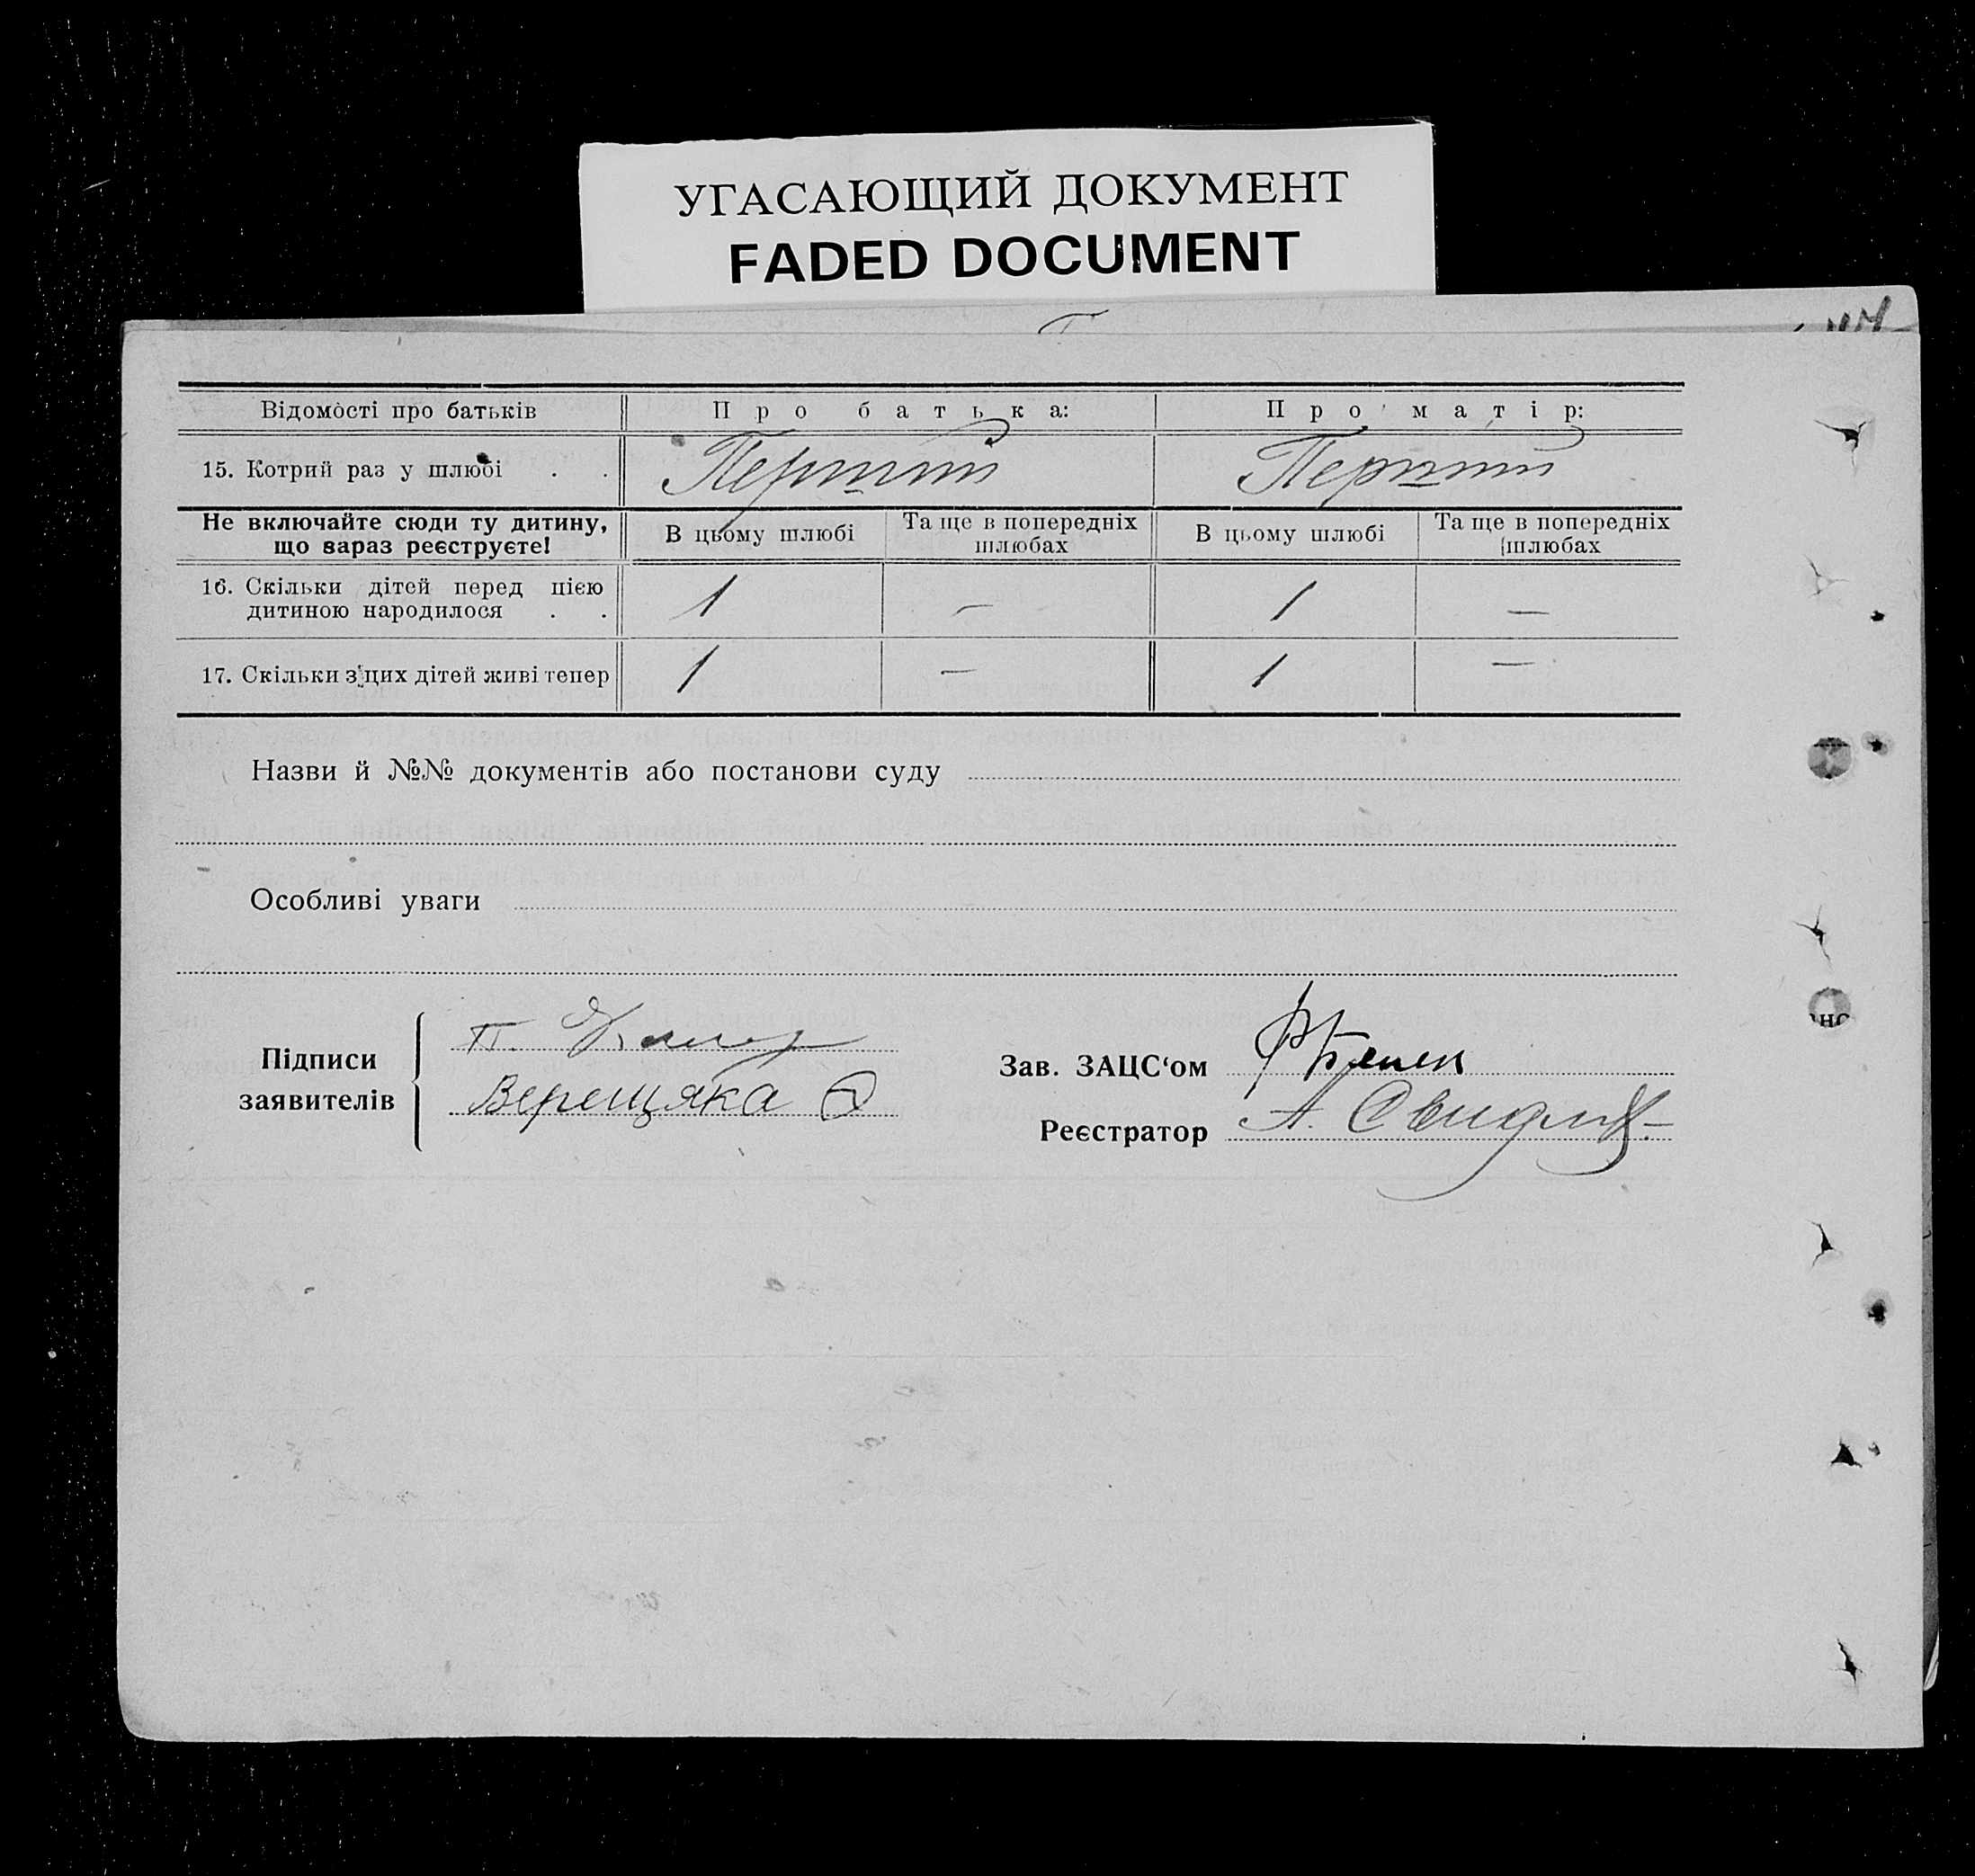 УГАСАЮЩИЙ ДОКУМЕНТ
FADED DOCUMENT
Відомості про батьків Про батька: Про матір:
15. Котрий раз у шлюбі . . Перший Перший
Не включайте сюди ту дитину, що зараз реєструєте! В цьому шлюбі Та ще в попередніх шлюбах В цьому шлюбі Та ще в попередніх шлюбах
16. Скільки дітей перед цією
дитиною народилося . . 1 — 1 —
17. Скільки з цих дітей живі тепер 1 — 1 —
Назви й №№ документів або постанови суду
Особливі уваги
Підписи
заявителів
П.
Верещяка
Зав. ЗАЦС‘ом
Реєстратор А.